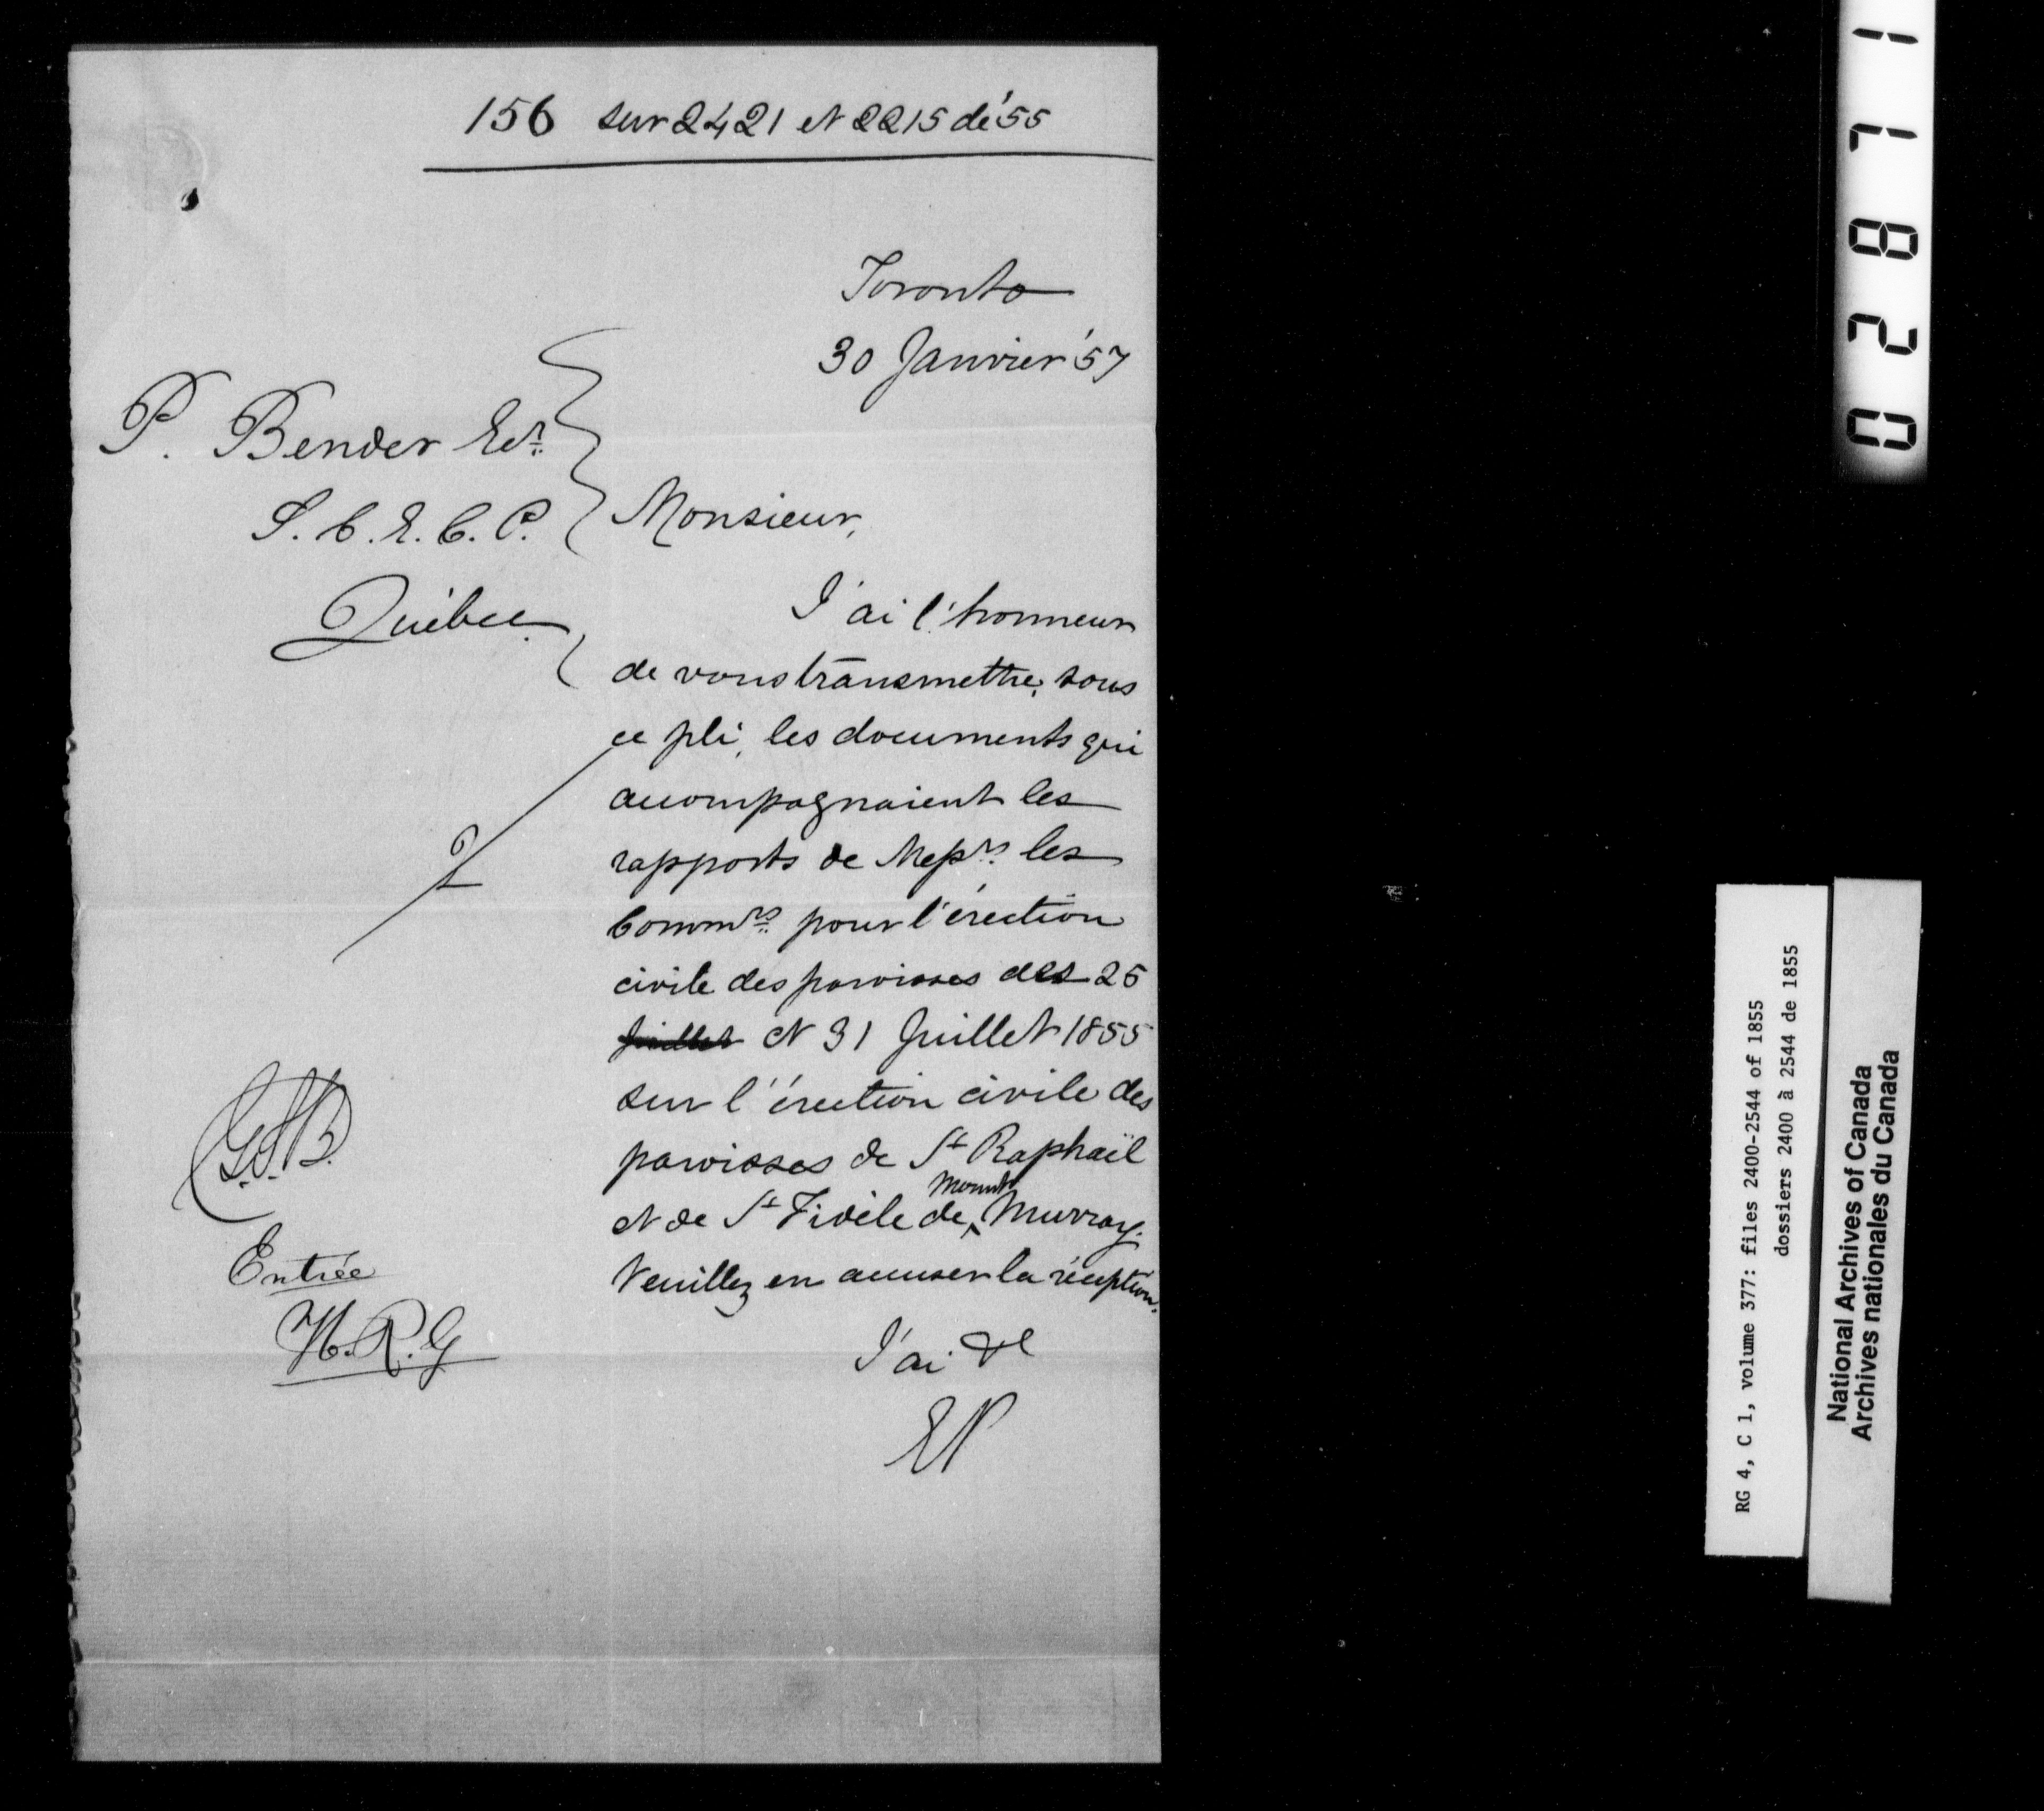 156 sur 2421 et 2215 de '55
Toronto
30 Janvier '57
P. Bender Ecr.
S. C. E. C. P.
Québec
Monsieur,
J'ai l'honneur
de vous transmettre, sous
ce pli, les documents qui
accompagnaient les
rapports de Messrs. les
Commrs. pour l'érection
civile des paroisses des 25
Juillet et 31 Juillet 1855
sur l'érection civile des
paroisses de St Raphaël
et de St Fidèle de Mount Murray.
Veuillez en accuser la réception.
J'ai &c
EP
Entrée
H. R. G
RG 4, C 1, volume 377: files 2400-2544 of 1855
dossiers 2400 à 2544 de 1855
National Archives of Canada
Archives nationales du Canada
02871